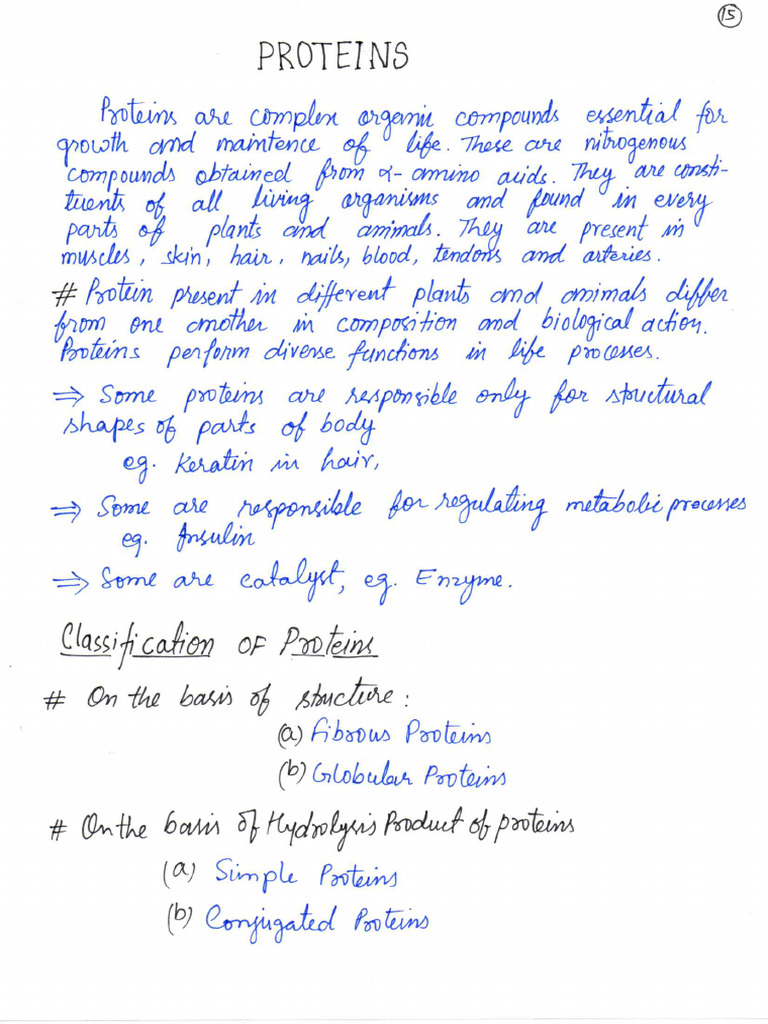 15
PROTEINS
Proteins are complex organic compounds essential for
growth and maintence of life. These are nitrogenous
compounds obtained from α- amino acids. They are consti-
tuents of all living organisms and found in every
parts of plants and animals. They are present in
muscles, skin, hair, nails, blood, tendons and arteries.
# Protein present in different plants and animals differ
from one another in composition and biological action.
Proteins perform diverse functions in life processes.
⇒ Some proteins are responsible only for structural
shapes of parts of body
eg. Keratin in hair,
⇒ Some are responsible for regulating metabolic processes
eg. Insulin
⇒ Some are catalyst, eg. Enzyme.
Classification OF Proteins
# On the basis of structure:
(a) Fibrous Proteins
(b) Globular Proteins
# On the basis of Hydrolysis Product of proteins
(a) Simple Proteins
(b) Conjugated Proteins